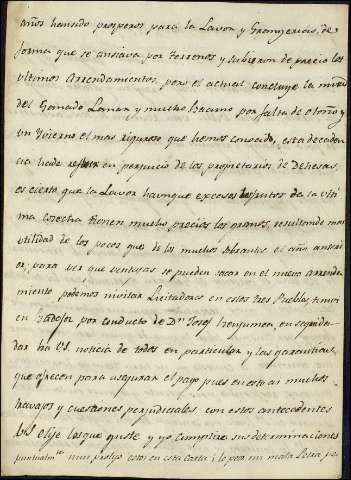 años han sido prosperos para la Lavor y Granjerias, de
forma que se ansiava por terrenos y subieron de precio los
ultimos Arrendamentos, pero el actual concluye la
del Ganado Lanar y mucho bacuno por falta de otoño y
un Ybierno el mas riguroso que hemos conocido, esta decaden
cia hade en perjuicio de los proprietarios de Dehesas,
es cierto, que la Lavor haunque excasos frutos de la ulti
ma cosecha tienen mucho precio los granos, resultando mas
utilidad de los pocos que de los muchos sobrantes el año anteri
or; para ver que ventajas se pueden sacar en el nuevo arrenda
miento podemos invitar Licitadores en estos tres Pueblos,
en por conducto de Dn Josef en seguida
dar ha VS. noticia de todos en particular y las garantias,
que ofrecen para asegurar el pago pues en estos ai muchos
travajos y cuestiones perjudiciales con estos antecedentes
VS elije los que guste y yo cumplire sus determinaciones
en esta Carta; lo por mi mala